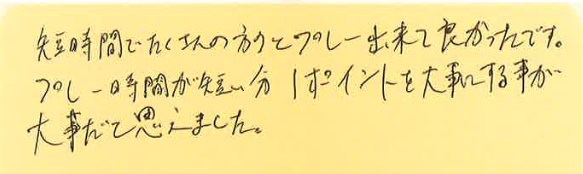 短時間でたくさんの方々とプレー出来て良かったです。
プレー時間が短い分 1ポイントを大事にする事が
大事だと思えました。